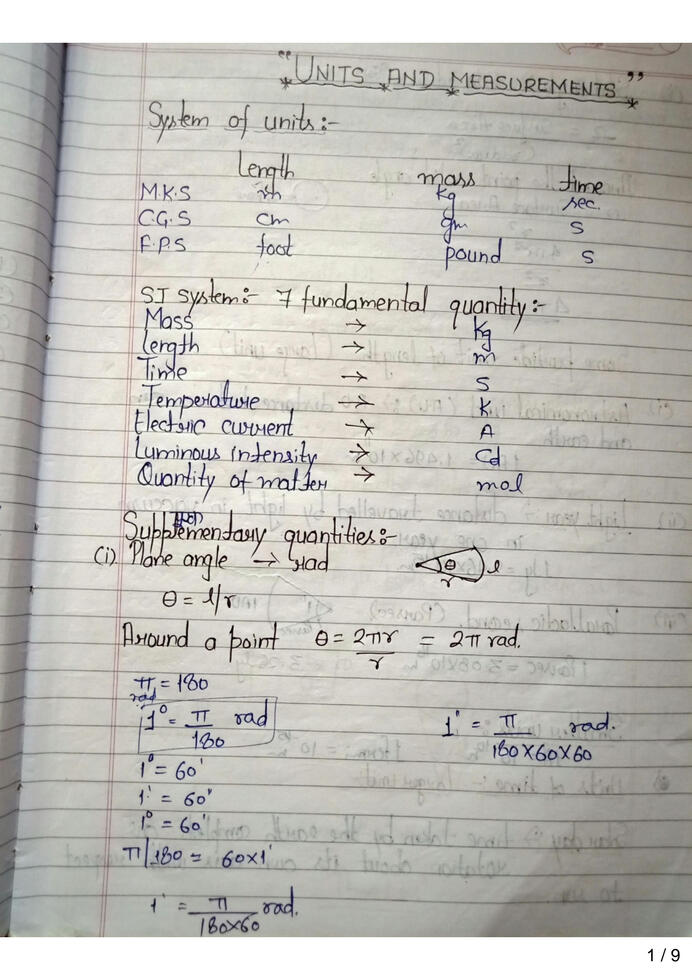 "UNITS AND MEASUREMENTS"
System of units:-
length mass time
M.K.S m kg sec.
C.G.S cm gm s
F.P.S foot pound s
SI system:- 7 fundamental quantity:-
Mass → Kg
length → m
Time → s
Temperature → K
Electric current → A
Luminous intensity → Cd
Quantity of matter → mol
Supplementary quantities:-
(i) Plane angle → rad θ l r
θ = l/r
Around a point θ = 2πr/r = 2π rad.
π rad = 180
1° = π/180 rad 1" = π/180×60×60 rad.
1° = 60'
1' = 60"
1° = 60'
π/180 = 60×1'
1' = π/180×60 rad.
1 / 9